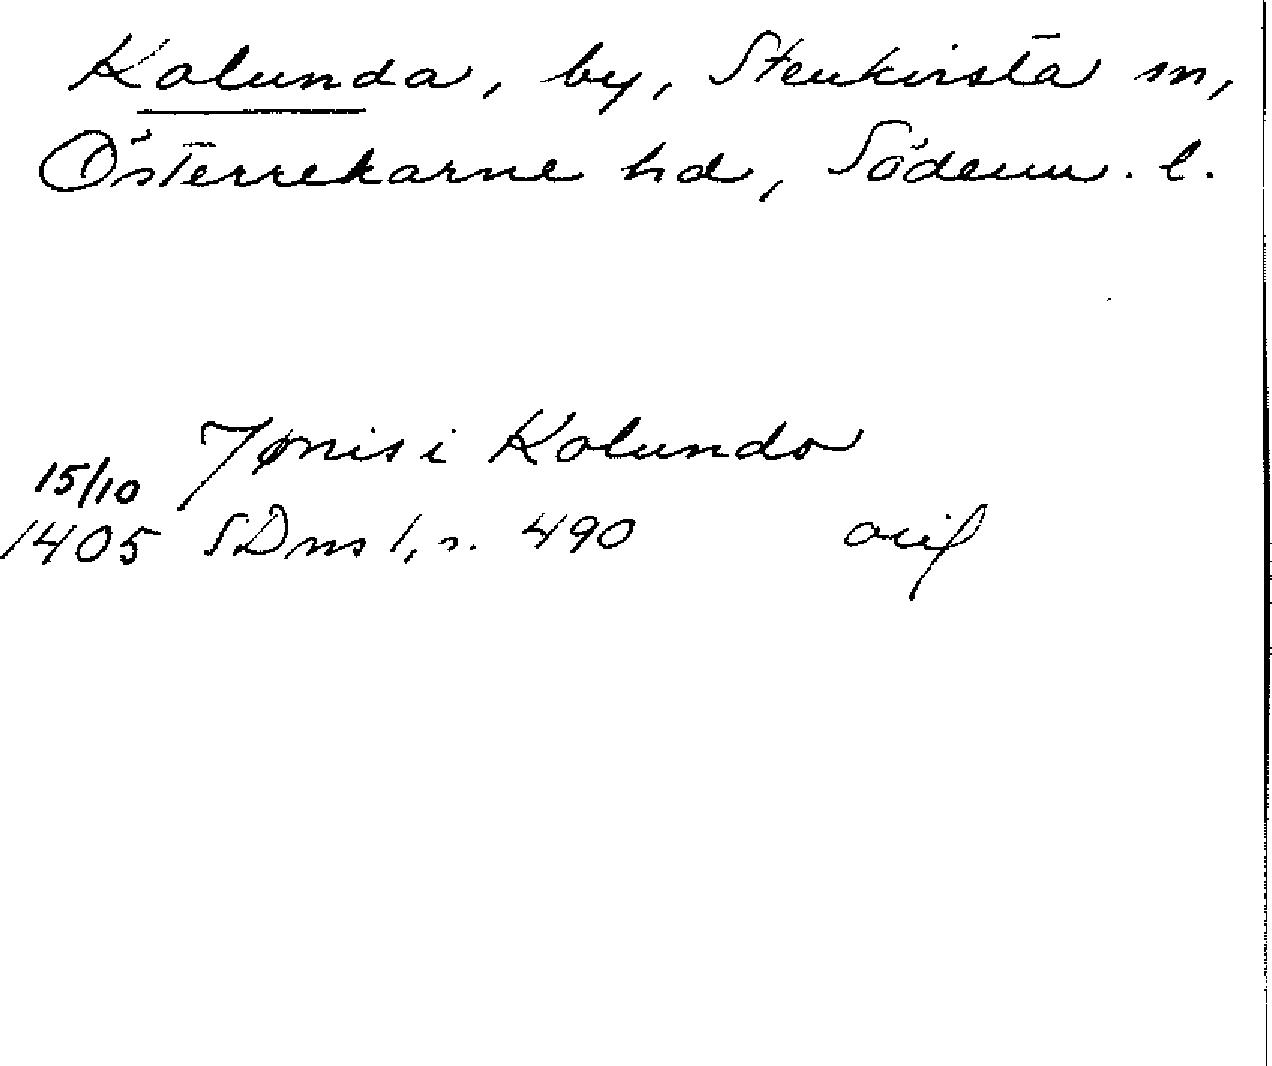 Kalunda, by, Stenkvista sn,
Österrekarne hd, Söderm. l.
Jønis i Kolundo
15/10
1405 SDns 1, s. 490 orig